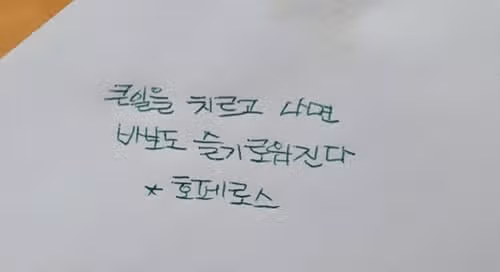 큰일을 치르고 나면
바보도 슬기로워진다
* 호페로스